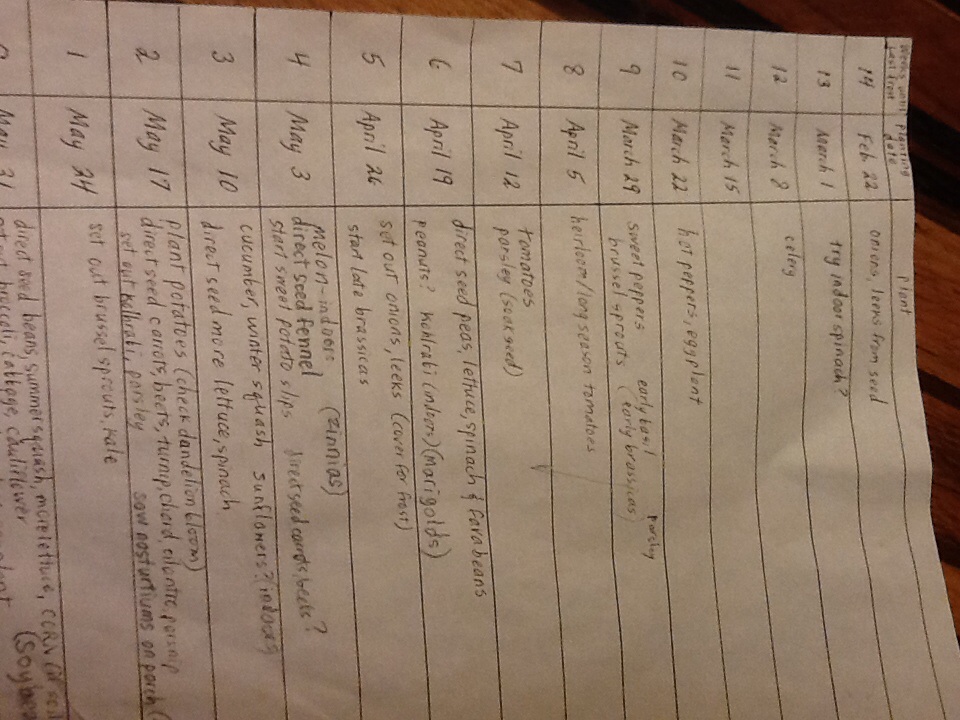 Weeks until last frost | Planting date | Plant
14 | Feb 22 | onions, leeks from seed
13 | March 1 | try indoor spinach?
12 | March 8 | celery
11 | March 15
10 | March 22 | hot peppers, eggplant
9 | March 29 | sweet peppers early basil parsley
brussel sprouts (early brassicas)
8 | April 5 | heirloom/long season tomatoes
7 | April 12 | tomatoes
parsley (soak seed)
6 | April 19 | direct seed peas, lettuce, spinach & fava beans
peanuts? kohlrabi (indoors) (marigolds)
5 | April 26 | set out onions, leeks (cover for frost)
start late brassicas
4 | May 3 | melon-indoors (zinnias)
direct seed fennel
start sweet potato slips direct seed carrots, beets?
cucumber, winter squash sunflowers? (indoors)
3 | May 10 | direct seed more lettuce, spinach
2 | May 17 | plant potatoes (check dandelion bloom)
direct seed carrots, beets, turnip, chard, cilantro, parsnip
set out kohlrabi, parsley sow nasturtiums on porch (
1 | May 24 | set out brussel sprouts, kale
May 31 | direct seed beans, summer squash, more lettuce, corn (if soil
broccoli, cabbage, cauliflower